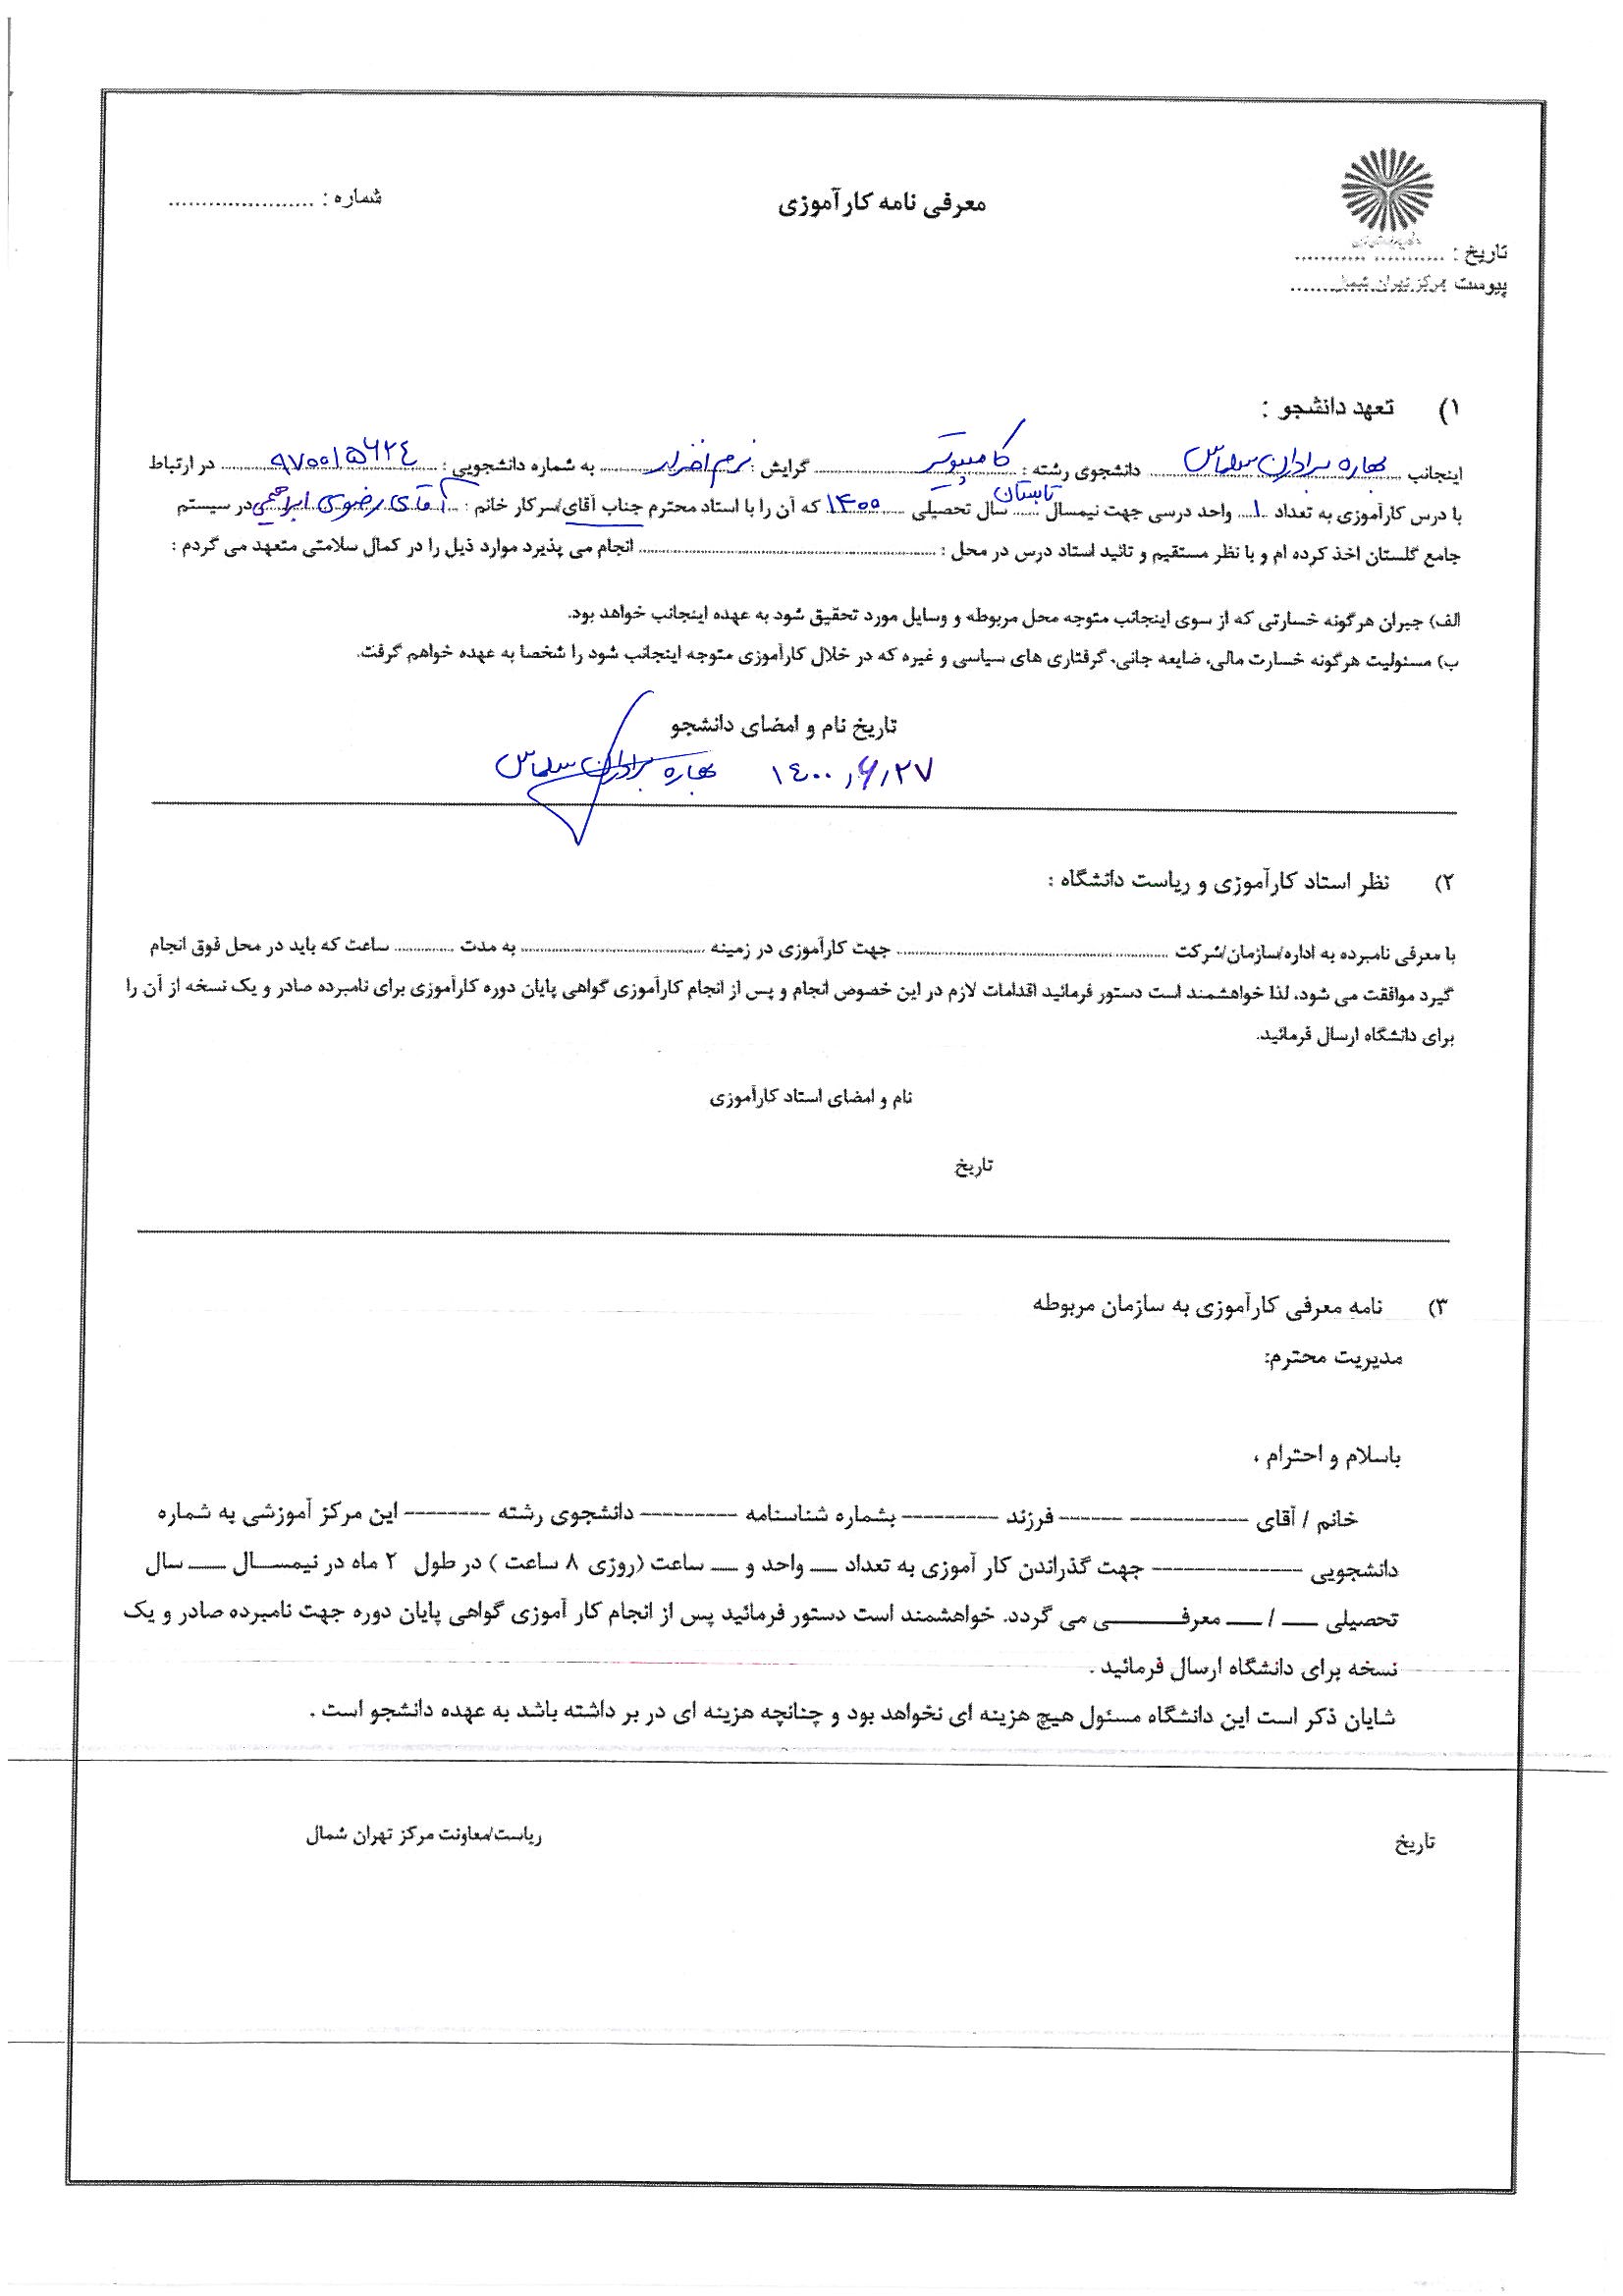 معرفی نامه کارآموزی
شماره : ......................
تاریخ : ......................
پیوست مرکز تهران شمال
۱) تعهد دانشجو :
اینجانب بهاره برادران سلماس دانشجوی رشته : کامپیوتر گرایش : نرم افزار به شماره دانشجویی : ۹۷۰۰۱۵۶۲۴ در ارتباط
با درس کارآموزی به تعداد ۱ واحد درسی جهت نیمسال تابستان سال تحصیلی ۱۴۰۰ که آن را با استاد محترم جناب آقای/سرکار خانم : آقای رضوی ابراهیمی در سیستم
جامع گلستان اخذ کرده ام و با نظر مستقیم و تائید استاد درس در محل : ...................... انجام می پذیرد موارد ذیل را در کمال سلامتی متعهد می گردم :
الف) جبران هرگونه خسارتی که از سوی اینجانب متوجه محل مربوطه و وسایل مورد تحقیق شود به عهده اینجانب خواهد بود.
ب) مسئولیت هرگونه خسارت مالی، ضایعه جانی، گرفتاری های سیاسی و غیره که در خلال کارآموزی متوجه اینجانب شود را شخصا به عهده خواهم گرفت.
تاریخ نام و امضای دانشجو
۱۴۰۰,۶,۲۷ بهاره برادران سلماس
۲) نظر استاد کارآموزی و ریاست دانشگاه :
با معرفی نامبرده به اداره/سازمان/شرکت ...................... جهت کارآموزی در زمینه ...................... به مدت ............ ساعت که باید در محل فوق انجام
گیرد موافقت می شود، لذا خواهشمند است دستور فرمائید اقدامات لازم در این خصوص انجام و پس از انجام کارآموزی گواهی پایان دوره کارآموزی برای نامبرده صادر و یک نسخه از آن را
برای دانشگاه ارسال فرمائید.
نام و امضای استاد کارآموزی
تاریخ
۳) نامه معرفی کارآموزی به سازمان مربوطه
مدیریت محترم:
باسلام و احترام ،
خانم / آقای ----------- ------ فرزند --------- بشماره شناسنامه --------- دانشجوی رشته -------- این مرکز آموزشی به شماره
دانشجویی -------------- جهت گذراندن کار آموزی به تعداد ـــ واحد و ـــ ساعت (روزی ۸ ساعت ) در طول ۲ ماه در نیمســال ــــ سال
تحصیلی ــــ / ــــ معرفـــــــــی می گردد. خواهشمند است دستور فرمائید پس از انجام کار آموزی گواهی پایان دوره جهت نامبرده صادر و یک
نسخه برای دانشگاه ارسال فرمائید .
شایان ذکر است این دانشگاه مسئول هیچ هزینه ای نخواهد بود و چنانچه هزینه ای در بر داشته باشد به عهده دانشجو است .
تاریخ
ریاست/معاونت مرکز تهران شمال